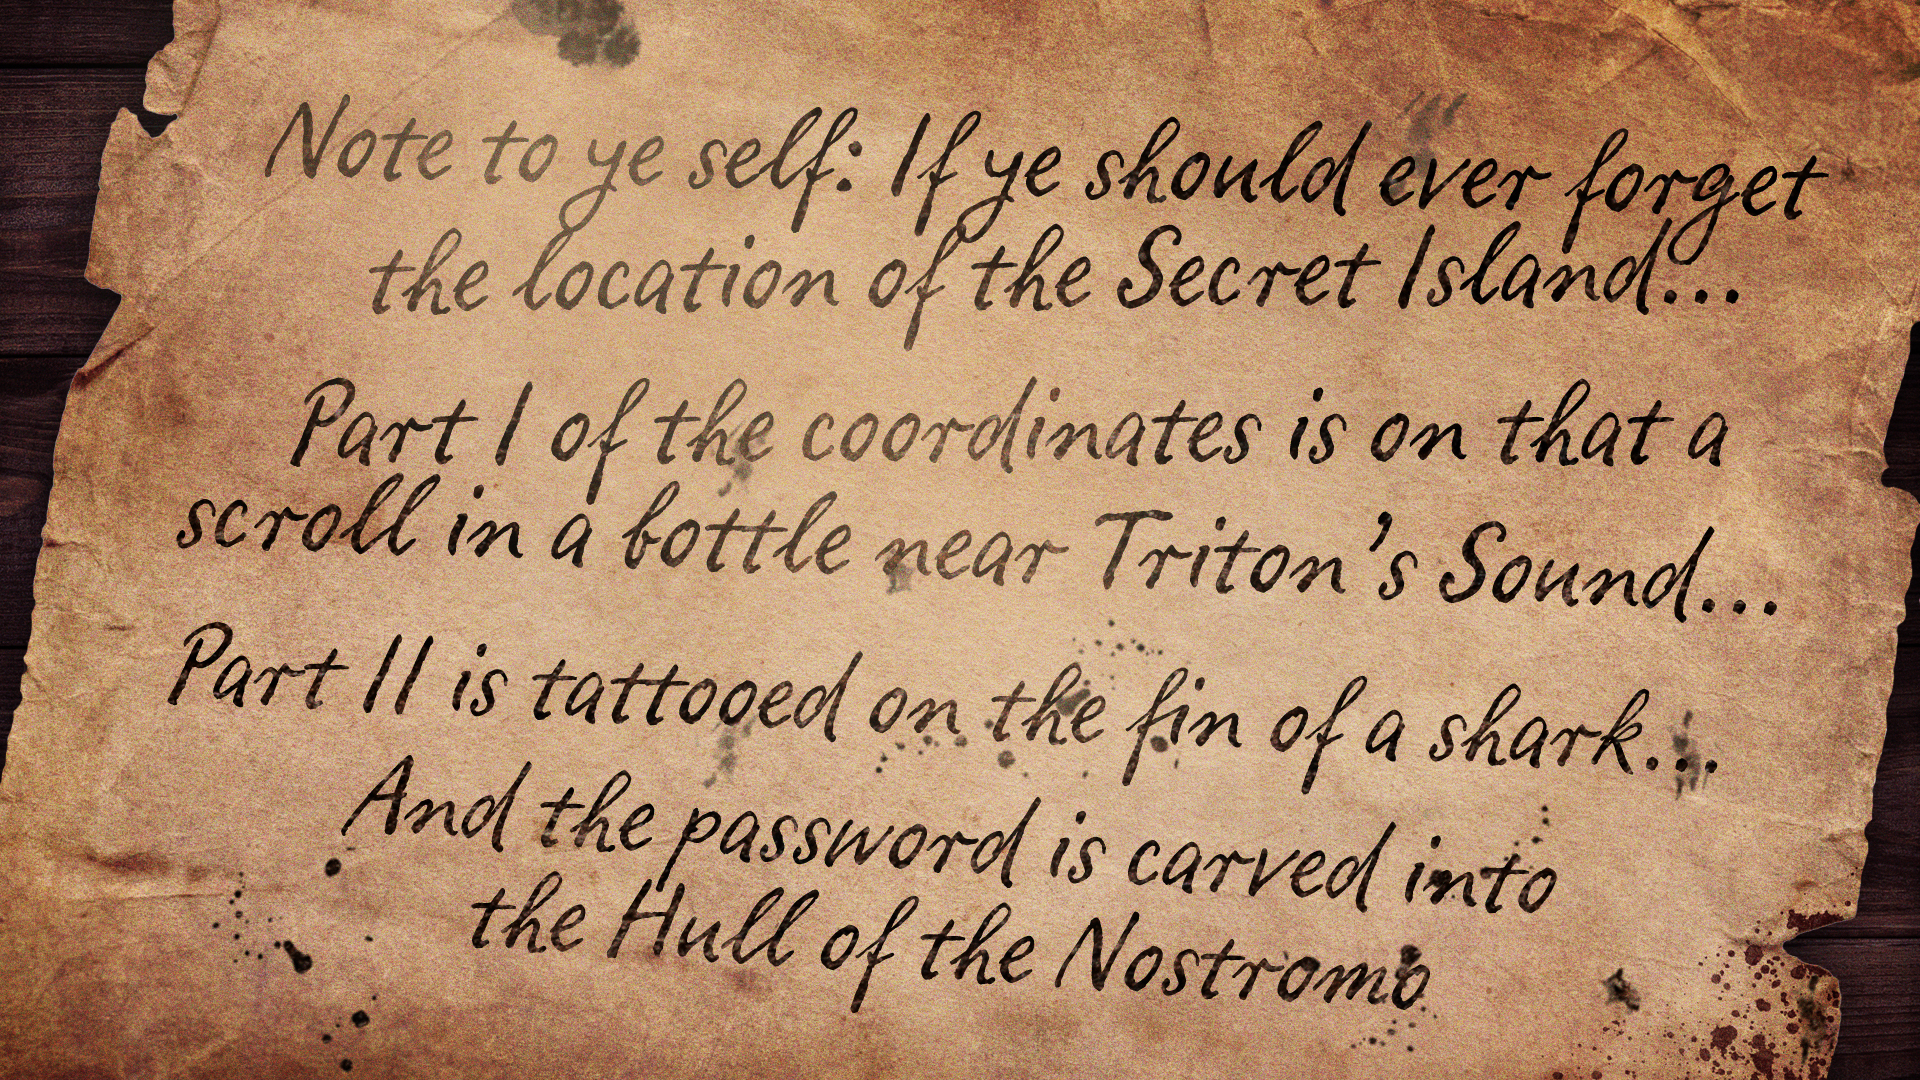 Note to ye self: If ye should ever forget
the location of the Secret Island...
Part I of the coordinates is on that a
scroll in a bottle near Triton's Sound...
Part II is tattooed on the fin of a shark...
And the password is carved into
the Hull of the Nostromo